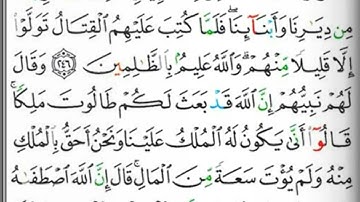 مِن دِيَـٰرِنَا وَأَبْنَآئِنَا ۖ فَلَمَّا كُتِبَ عَلَيْهِمُ ٱلْقِتَالُ تَوَلَّوْا۟
إِلَّا قَلِيلًا مِّنْهُمْ ۗ وَٱللَّهُ عَلِيمٌۢ بِٱلظَّـٰلِمِينَ ٢٤٦ وَقَالَ
لَهُمْ نَبِيُّهُمْ إِنَّ ٱللَّهَ قَدْ بَعَثَ لَكُمْ طَالُوتَ مَلِكًا ۚ
قَالُوٓا۟ أَنَّىٰ يَكُونُ لَهُ ٱلْمُلْكُ عَلَيْنَا وَنَحْنُ أَحَقُّ بِٱلْمُلْكِ
مِنْهُ وَلَمْ يُؤْتَ سَعَةً مِّنَ ٱلْمَالِ ۚ قَالَ إِنَّ ٱللَّهَ ٱصْطَفَىٰهُ